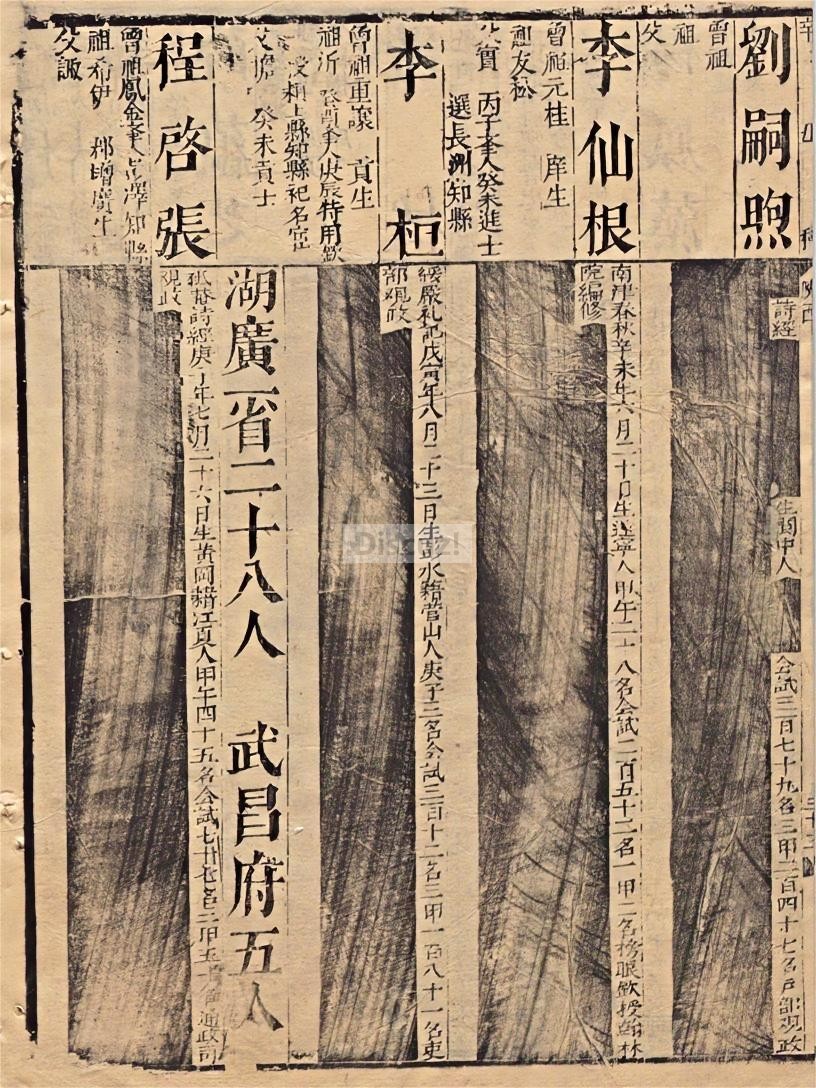 劉嗣煦
曾祖
祖
父
詩經
生閬中人
會試三百七十九名三甲二百四十七名戶部观政
李仙根
曾祖元桂 庠生
祖友松
父實 丙子奉人癸未進士
選長洲知縣
南津春秋辛未年六月二十日生遂寧人甲午二十八名会試二百五十二名一甲二名榜眼欽授翰林
院編修
李桓
曾祖重讓 貢生
祖沂 癸酉奉人庚辰特用欽
授穎上縣知縣祀名宦
父擔 癸未貢士
緩嚴礼記戊寅年八月二十三日生彭水籍营山人庚子三名会試三百十二名三甲一百八十一名吏
部观政
湖廣一省二十八人 武昌府五人
程啓張
曾祖鳳金奉人 澤知縣
祖希伊 郡增廣生
父諏
詩經庚 年七月二十六日生黄岡籍江夏人甲午四十五名会試七 名三甲五十 名通政司
观政
Discuz!